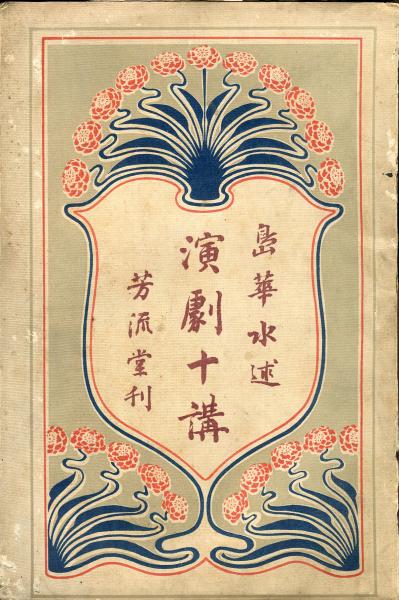 島華水述
演劇十講
芳流堂刊